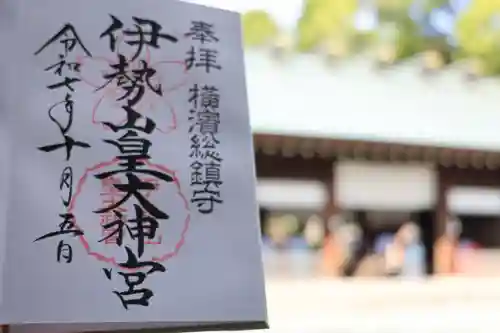 奉拝 横濱総鎮守
伊勢山皇大神宮
令和七年十月五日